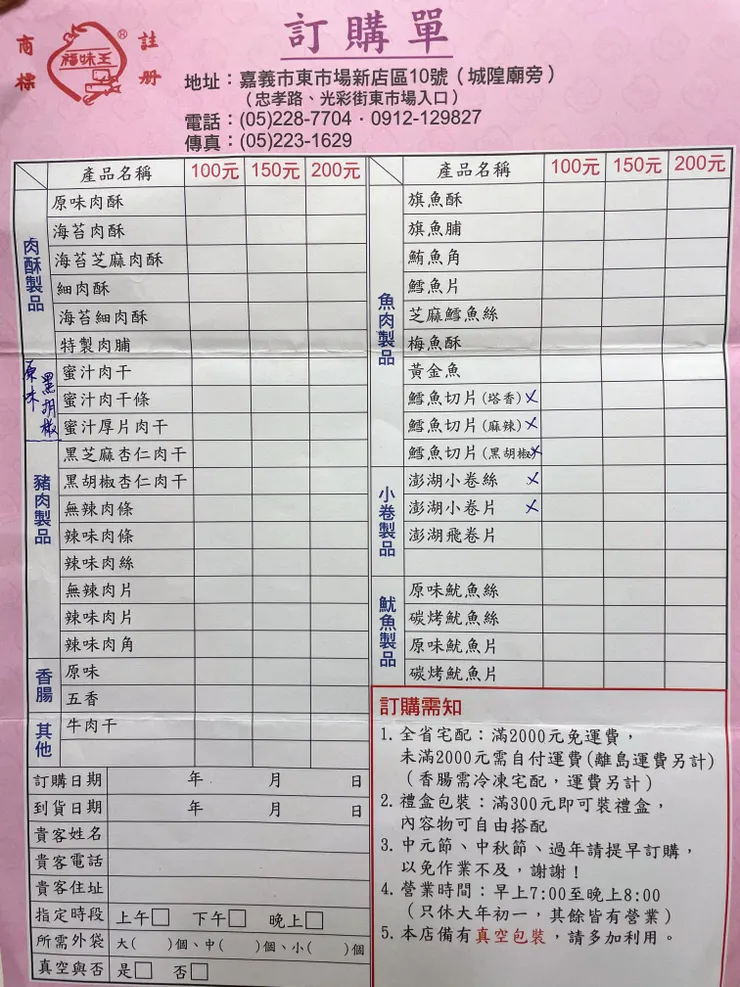 訂購單
商標
福味王
®
註册
地址：嘉義市東市場新店區10號（城隍廟旁）
（忠孝路、光彩街東市場入口）
電話：(05)228-7704．0912-129827
傳真：(05)223-1629
產品名稱 100元 150元 200元
肉酥製品
原味肉酥
海苔肉酥
海苔芝麻肉酥
細肉酥
海苔細肉酥
特製肉脯
原味 黑胡椒
豬肉製品
蜜汁肉干
蜜汁肉干條
蜜汁厚片肉干
黑芝麻杏仁肉干
黑胡椒杏仁肉干
無辣肉條
辣味肉條
辣味肉絲
無辣肉片
辣味肉片
辣味肉角
香腸
原味
五香
其他
牛肉干
訂購日期 年 月 日
到貨日期 年 月 日
貴客姓名
貴客電話
貴客住址
指定時段 上午□ 下午□ 晚上□
所需外袋 大( )個、中( )個、小( )個
真空與否 是□ 否□
產品名稱 100元 150元 200元
魚肉製品
旗魚酥
旗魚脯
鮪魚角
鱈魚片
芝麻鱈魚絲
梅魚酥
黃金魚
鱈魚切片(塔香) ×
鱈魚切片(麻辣) ×
鱈魚切片(黑胡椒) ×
小卷製品
澎湖小卷絲 ×
澎湖小卷片 ×
澎湖飛卷片
魷魚製品
原味魷魚絲
碳烤魷魚絲
原味魷魚片
碳烤魷魚片
訂購需知
1. 全省宅配：滿2000元免運費，
未滿2000元需自付運費(離島運費另計)
（香腸需冷凍宅配，運費另計）
2. 禮盒包裝：滿300元即可裝禮盒，
內容物可自由搭配
3. 中元節、中秋節、過年請提早訂購，
以免作業不及，謝謝！
4. 營業時間：早上7:00至晚上8:00
（只休大年初一，其餘皆有營業）
5. 本店備有真空包裝，請多加利用。